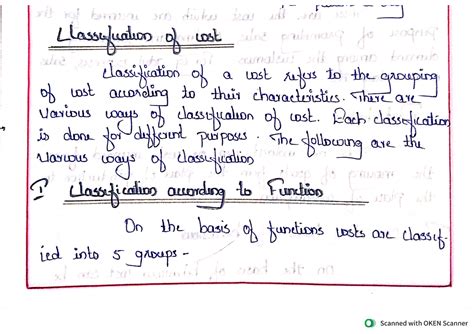 Classification of cost
Classification of a cost refers to the grouping
of cost according to their characteristics. There are
various ways of classification of cost. Each classification
is done for different purposes. The following are the
various ways of classification
I Classification according to Function
On the basis of functions costs are classif-
ied into 5 groups -
Scanned with OKEN Scanner